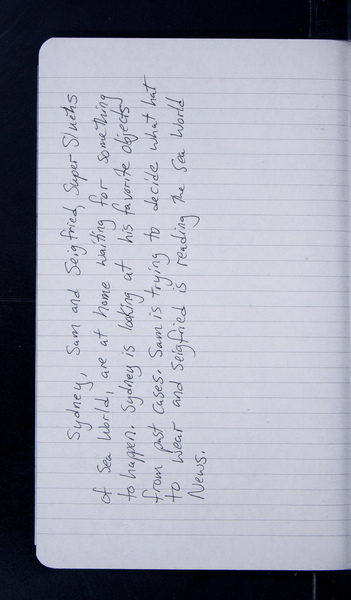 Sydney, Sam and Seigfried, Super Sluths
of Sea World, are at home waiting for something
to happen. Sydney is looking at his favorite objects
from past cases. Sam is trying to decide what hat
to wear and Seigfried is reading the Sea World
News.